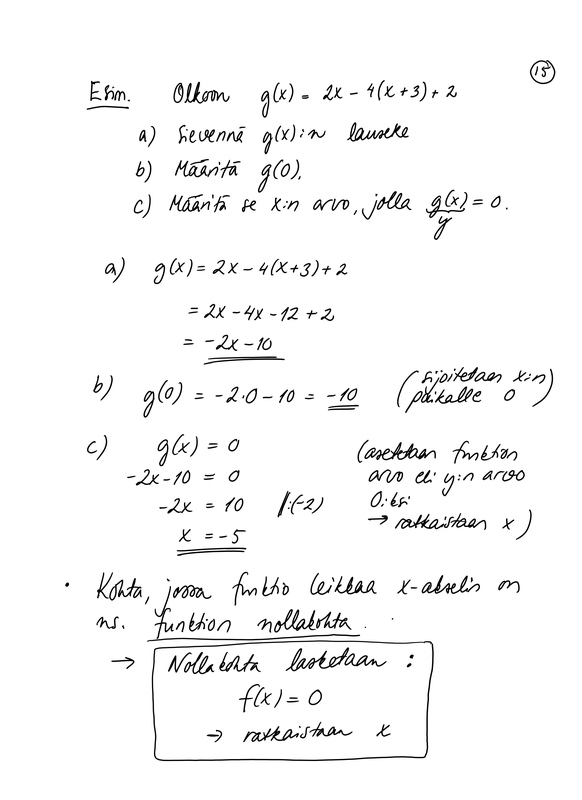 15
Esim. Olkoon g(x) = 2x - 4(x+3) + 2
a) Sievennä g(x):n lauseke
b) Määritä g(0).
c) Määritä se x:n arvo, jolla g(x) = 0.
y
a) g(x) = 2x - 4(x+3) + 2
= 2x - 4x - 12 + 2
= -2x - 10
b) g(0) = -2·0 - 10 = -10 (sijoitetaan x:n
paikalle 0)
c) g(x) = 0 (asetetaan funktion
-2x - 10 = 0 arvo eli y:n arvo
-2x = 10 |:(-2) 0:ksi
x = -5 → ratkaistaan x)
• Kohta, jossa funktio leikkaa x-akselin on
ns. funktion nollakohta.
→ Nollakohta lasketaan:
f(x) = 0
→ ratkaistaan x